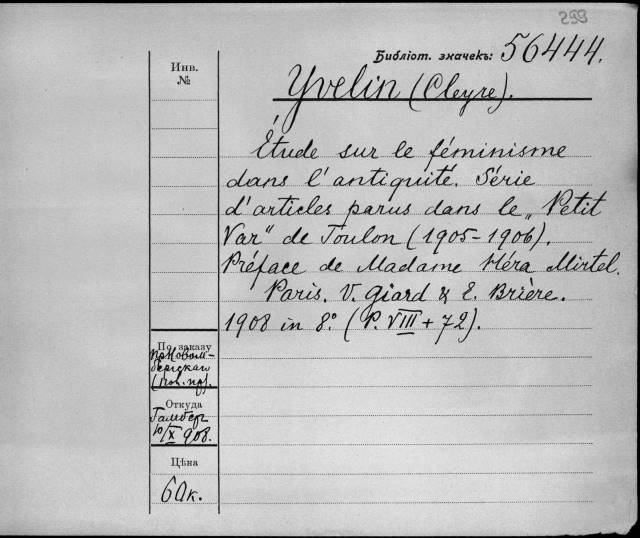 299
Библіот. значекъ: 56444.
Инв.
№
Yvelin (Cleyre).
Étude sur le féminisme
dans l'antiquité. Série
d'articles parus dans le „Petit
Var" de Toulon (1905-1906).
Préface de Madame Héra Mirtel.
Paris. V. Giard & E. Brière.
1908 in 8.° (P. VIII + 72).
По заказу
Откуда
10/X 908.
Цѣна
60к.